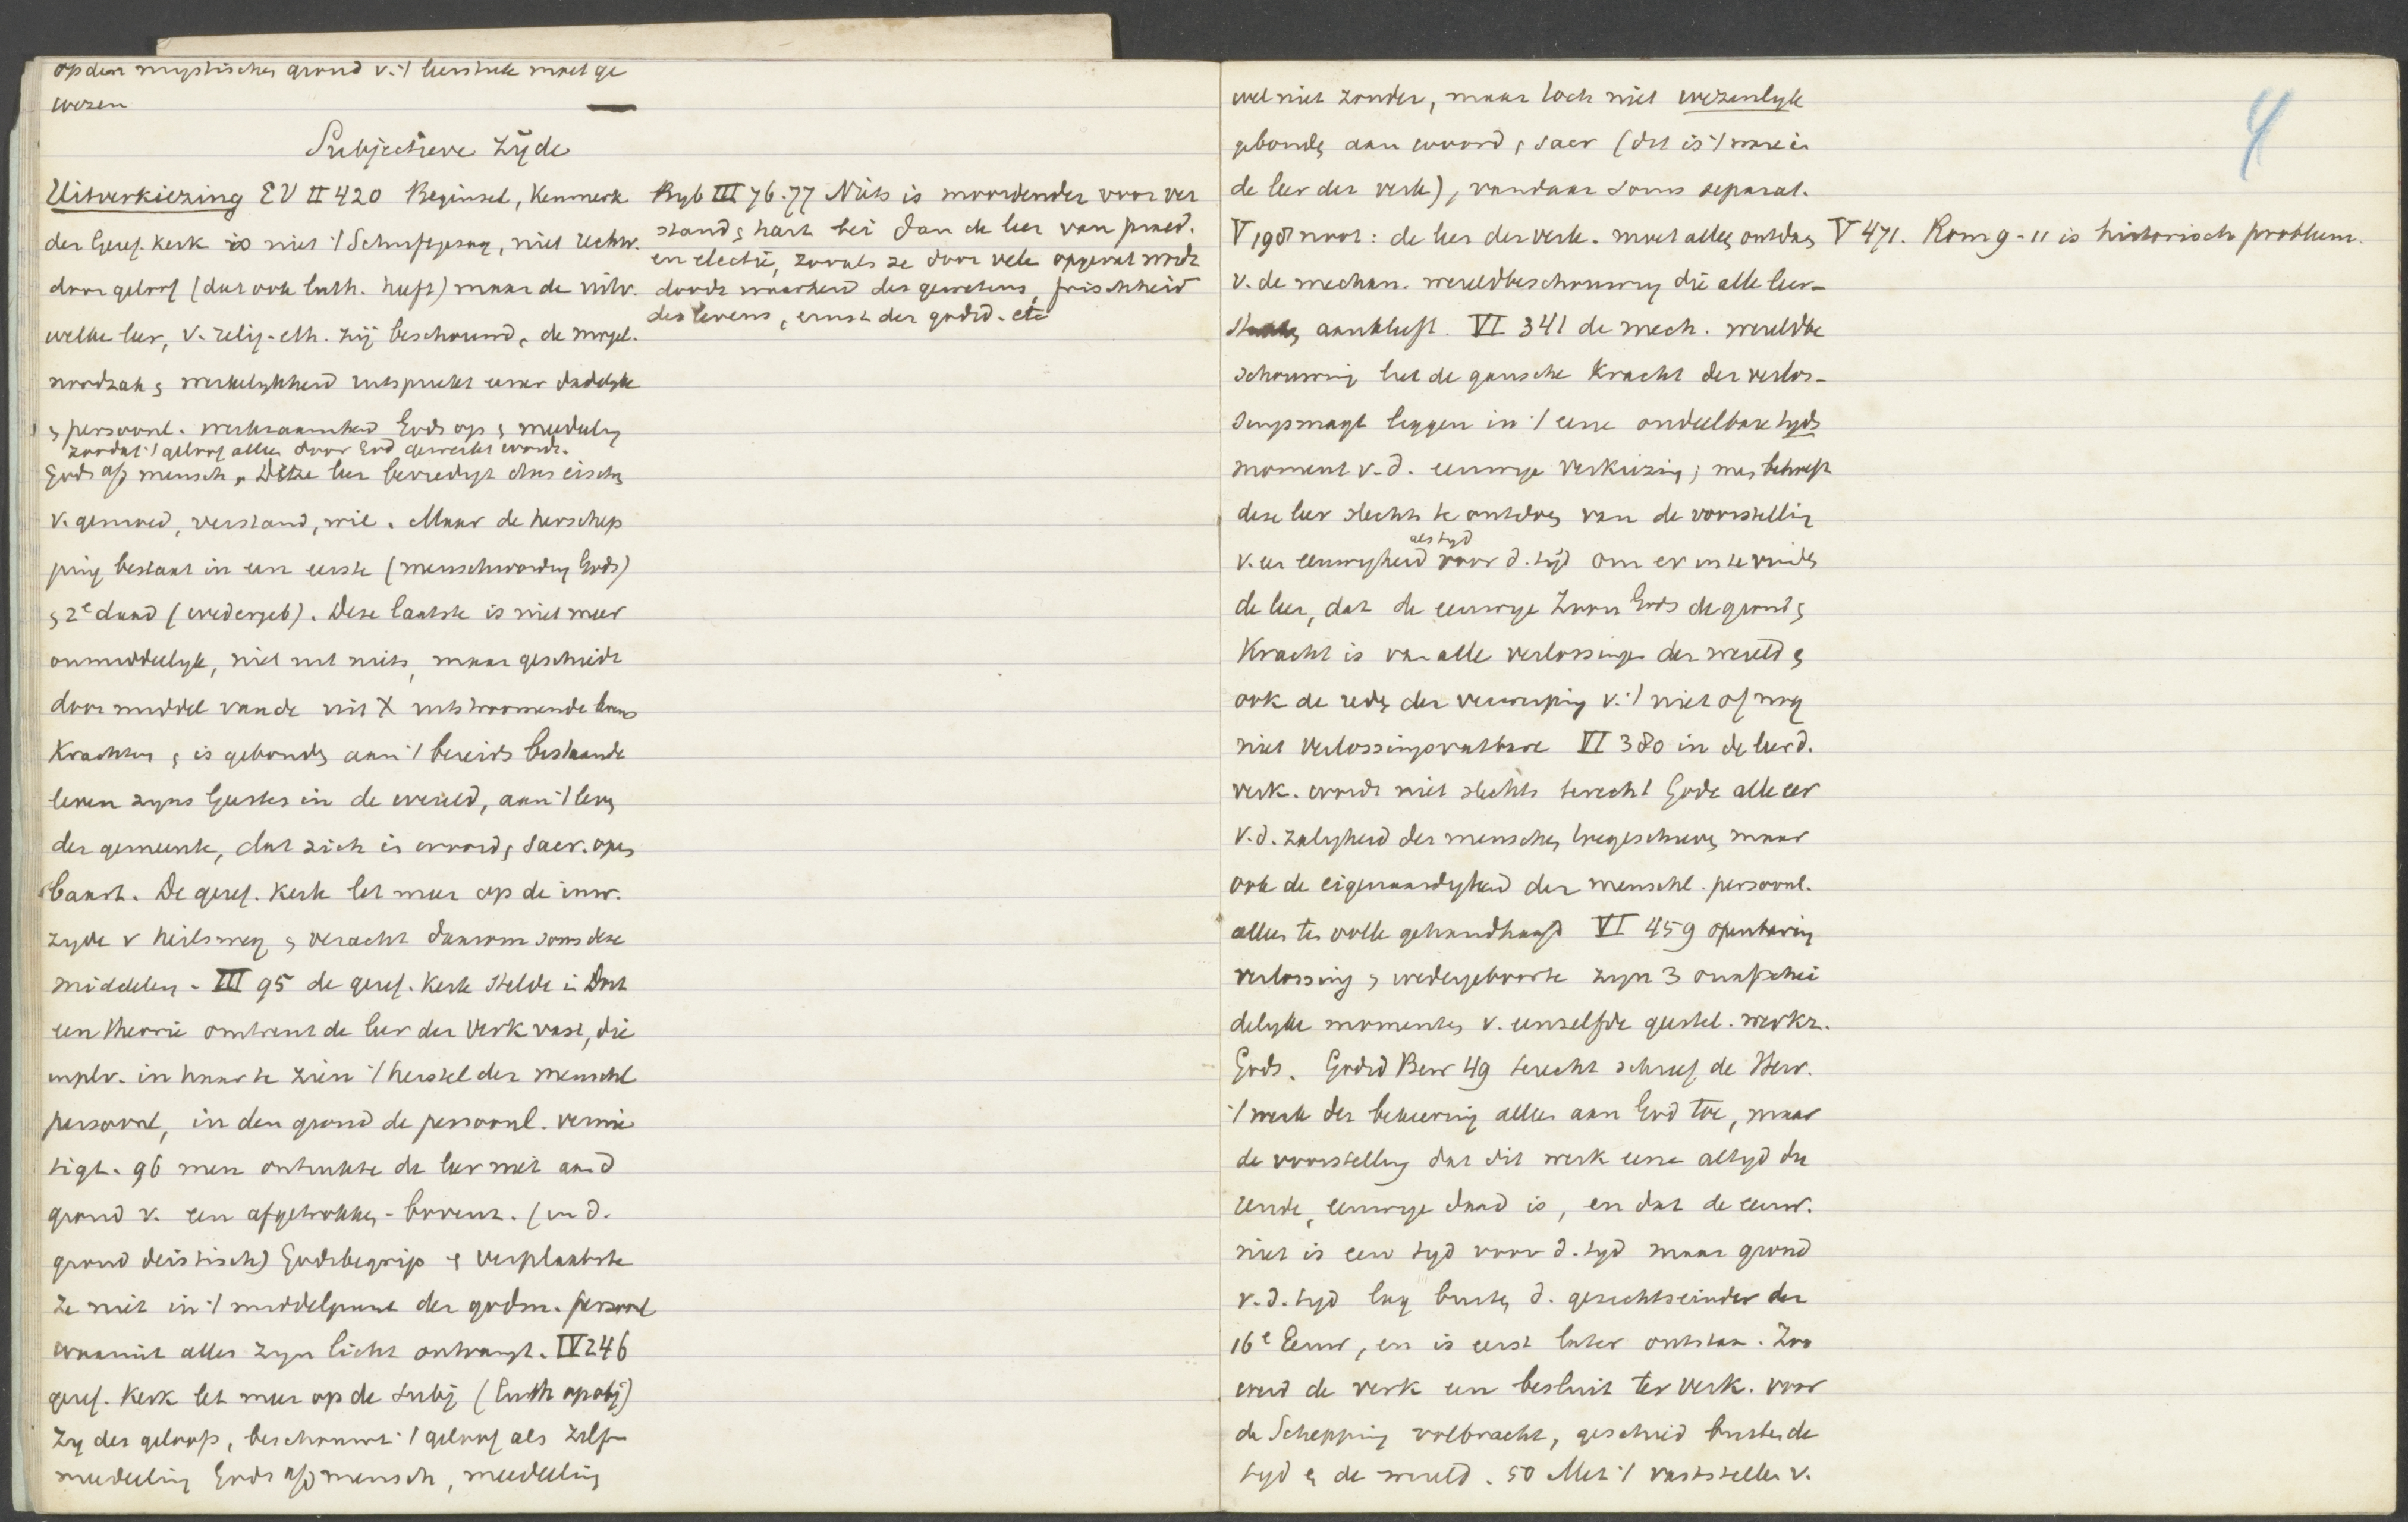 op den mystischen grond v. 't leerstuk moet ge
wezen
Subjectieve zijde
Uitverkiezing EV II 420 Beginsel, Kenmerk
der Geref. kerk is niet 't Schriftgezag, niet rechtv.
door geloof (dat ook luth. heeft) maar de uitv.
welke leer, v. relig-eth. zij beschouwd, de mogel.
noodzak & werkelijkheid uitspreekt eener dadelyke
& persoonl. werkzaamheid Gods op & mededeeling
zoodat 't geloof alleen door God gewerkt wordt.
Gods a/d mensch, Deze leer bevredigt dus eischen
v. gemoed, verstand, wil. Maar de herschep
ping bestaat in een eerste (menschwording Gods)
& 2e daad (wedergeb). Deze laatste is niet meer
onmiddellyk, niet uit niets, maar geschiedt
door middel van de uit X uitstroomende levens
Krachten & is gebonden aan 't bereids bestaande
leven zyns Geestes in de wereld, aan 't leven
der gemeente, dat zich in woord & Sacr. open
baart. De geref. Kerk let meer op de inw.
zyde v heilsweg & veracht daarom soms deze
middelen. III 95 de geref. Kerk stelde in Dort
een theorie omtrent de leer der Verk vast, die
inplv. in haar te zien 't herstel der menschl
persoonl, in den grond de persoonl. vernie
tigt. 96 men ontrukte de leer niet aan d
grond v. een afgetrokken-bovent. (in d.
grond deistisch) Godsbegrip & verplaatste
ze niet in 't middelpunt der godm. persoonl
waaruit alles zyn licht ontvangt. IV 246
geref. Kerk let meer op de subj (Luth op obj)
Zy des geloofs, beschouwt 't geloof als zelf
mededeeling Gods a/d mensch, mededeeling
Byb III 76.77 Niets is moordender voor ver
stand & hart bei dan de leer van praed.
en electie, zooals ze door vele opgevat wordt
doodt waarheid des gewetens, frischheid
des levens, ernst der godsd. etc
wel niet zonder, maar toch niet wezenlyk
gebonden aan woord & Sacr (dit is 't ware in
de leer der verk), vandaar soms separat.
V 198 noot: de leer der verk. moet alleen ontdaan
v. de mechan. wereldbeschouwing die alle leer-
aankleeft. VI 341 de mech. wereldbe
schouwing liet de gansche Kracht der verlos-
singsmagt liggen in 't eene ondeelbare tyds
moment v. d. eeuwige verkiezing; men behoeft
deze leer slechts te ontdoen van de voorstelling
als tyd
v. een eeuwigheid voor d. tijd om er in te vinden
de leer, dat de eeuwige Zoon Gods de grond &
Kracht is van alle verlossingen der wereld &
ook de reden der verwerping v. 't niet of nog
niet verlossingsvatbare VI 380 in de leer d.
verk. wordt niet slechts terecht Gode alle eer
v. d. zaligheid der menschen toegeschreven maar
ook de eigenaardigheid der menschl. persoonl.
alles ten volle gehandhaafd VI 459 openbaring
verlossing & wedergeboorte zyn 3 onafschei
delyke momenten v. eenzelfde geestel. werkz.
Gods. Godsd Bew 49 terecht schreef de Herv.
't werk der bekeering alleen aan God toe, maar
de voorstelling dat dit werk eene altyd du
rende, eeuwige daad is, en dat de eeuw.
niet is een tyd voor d. tyd maar grond
v. d. tyd lag buiten d. gezichtseinder der
16e Eeuw, en is eerst later ontstaan. Zoo
werd de verk een besluit ter verk. voor
de Schepping volbracht, gescheid buiten de
tyd & de wereld. 50 Met 't vaststellen v.
V 471. Rom 9-11 is historisch probleem.
4